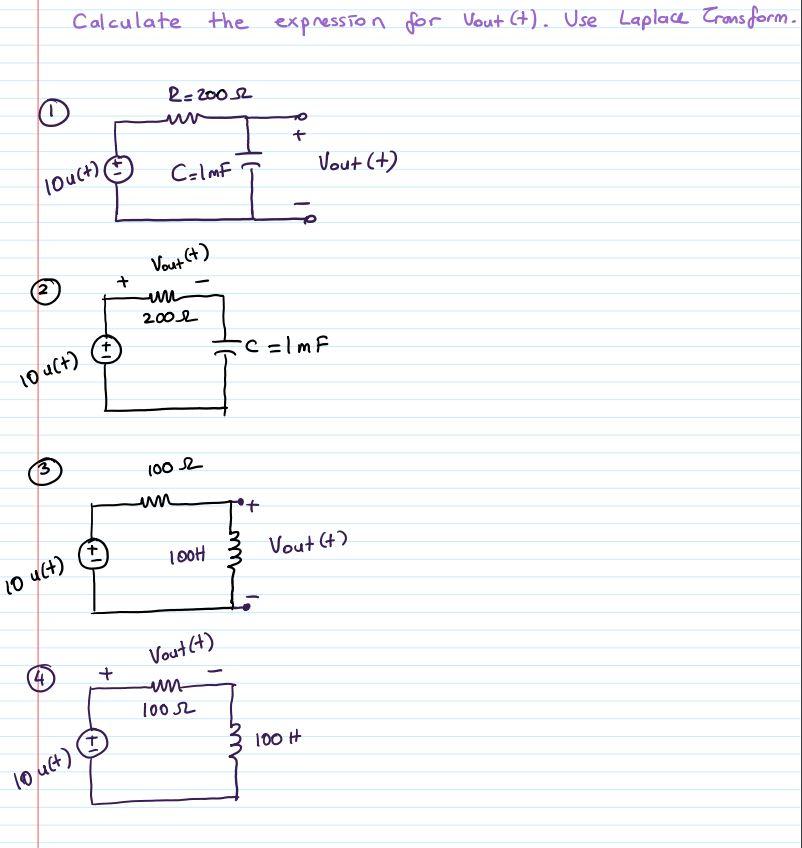 Calculate the expression for Vout(t). Use Laplace Transform.
1
R=200Ω
10u(t)
+
-
C=1mF
+
Vout(t)
-
2
Vout(t)
+ -
200Ω
10u(t)
+
-
C=1mF
3
100Ω
10u(t)
+
-
100H
+
Vout(t)
-
4
Vout(t)
+ -
100Ω
10u(t)
+
-
100H